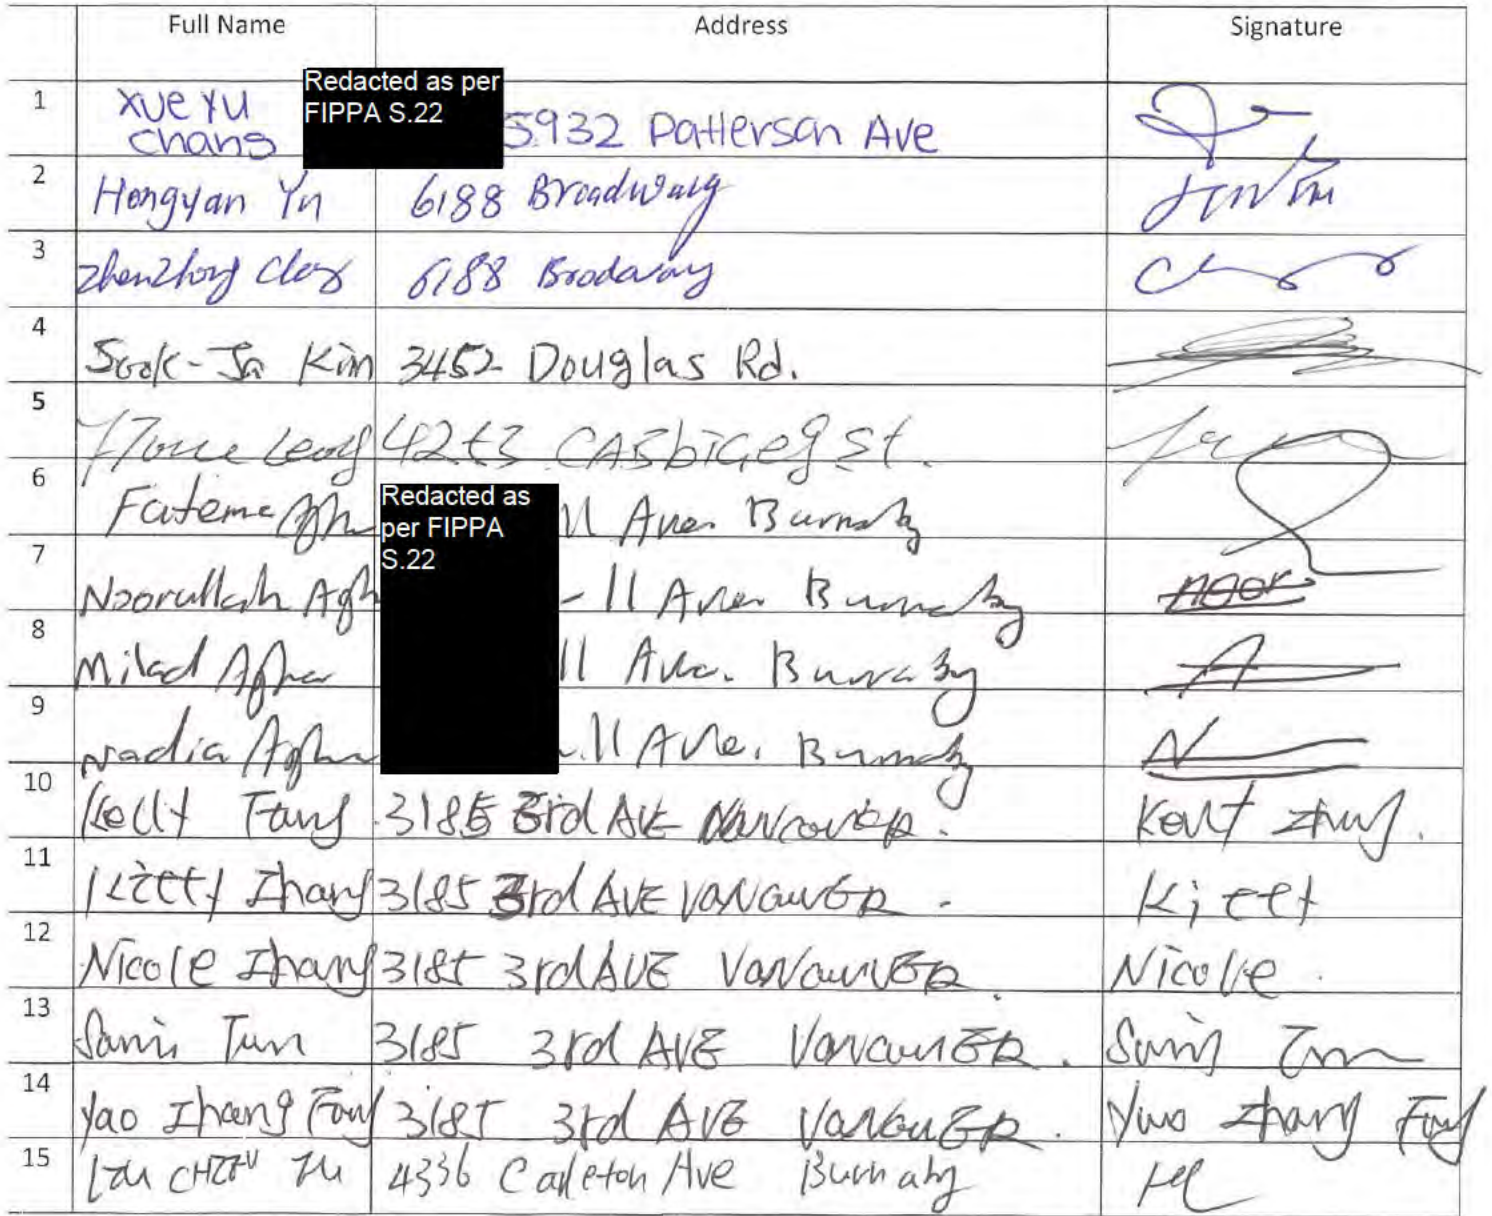 Full Name Address Signature
Redacted as per
FIPPA S.22
1 Xue Yu
Chang 5932 Patterson Ave
2 Hongyan Yu 6188 Broadway
3 Zhenzhong 6188 Brodaway
4 Sook-Ja Kim 3452 Douglas Rd.
5 Leong St.
Redacted as
per FIPPA
S.22
6 Fateme Agh 11 Ave. Burnaby
7 Noorullah Agh - 11 Ave. Burnaby noor
8 Milad Agha 11 Ave. Burnaby A
9 Nadia Agha 11 Ave. Burnaby N
10 Fang 3185 3rd AVE Vancouver.
11 Kitty Zhang 3185 3rd AVE VANCOUVER. Kitty
12 Nicole Zhang 3185 3rd AVE VANCOUVER. Nicole.
13 3185 3rd AVE VANCOUVER.
14 Yao Zhang Fong 3185 3rd AVE VANCOUVER. Yao Zhang Fong
15 4336 Carleton Ave Burnaby